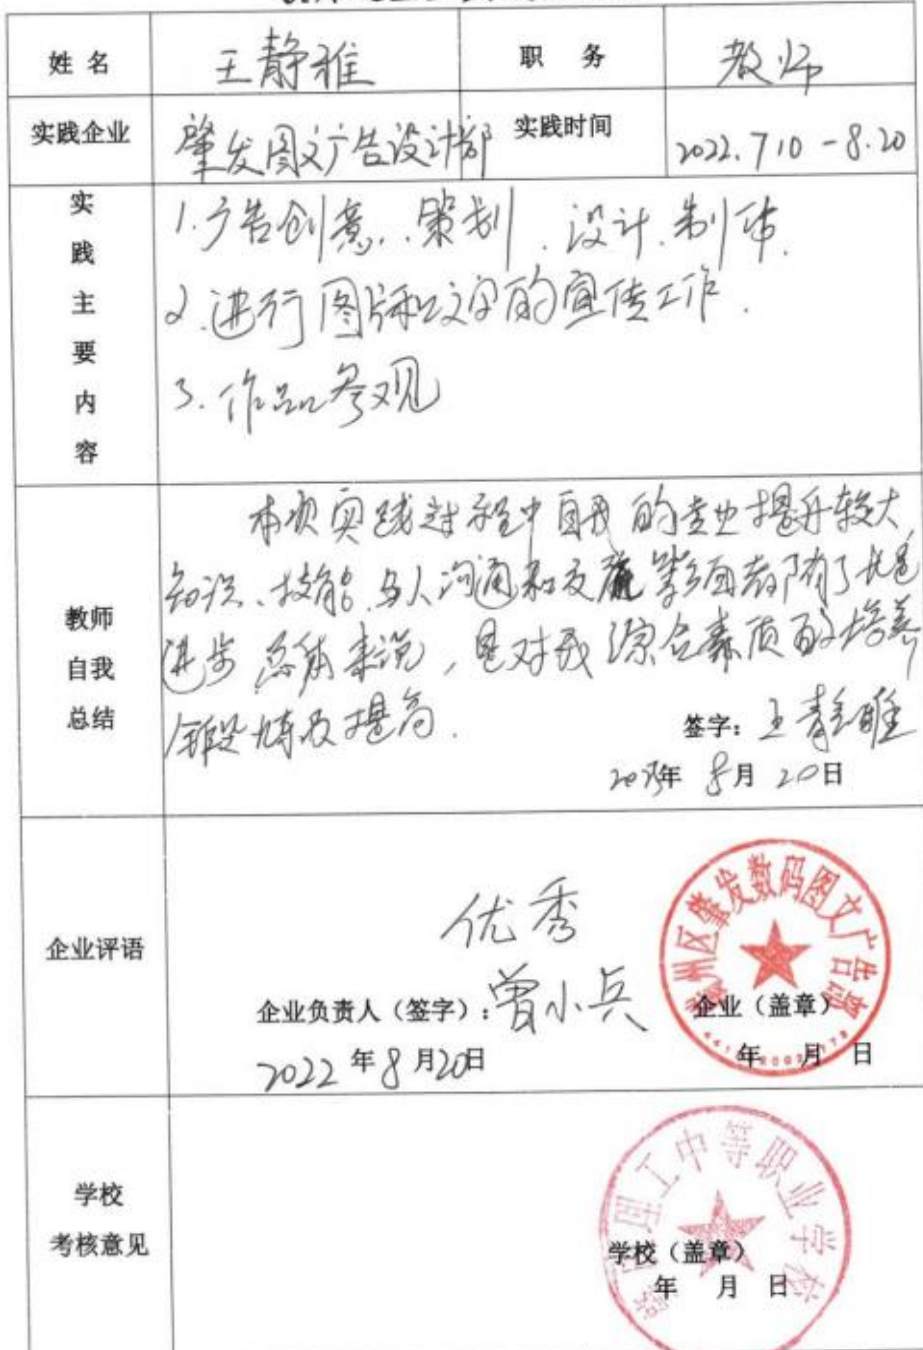 姓名 王静雅 职务 教师
实践企业 肇发图文广告设计部 实践时间 2022.7.10-8.20
实践主要内容
1.广告创意、策划、设计、制作.
2.进行图片和文字的宣传工作.
3.作品参观
教师自我总结
本次实践过程中自我的专业提升较大
知识、技能、与人沟通和发展等多方面都有了长足
进步 总体来说,是对我综合素质的培养
锻炼及提高.
签字:王静雅
年8月20日
企业评语
优秀
企业负责人(签字):曾小兵 企业(盖章)
2022年8月20日 年 月 日
州区肇发数码图文广告部
学校考核意见
理工中等职业学校
学校(盖章)
年 月 日